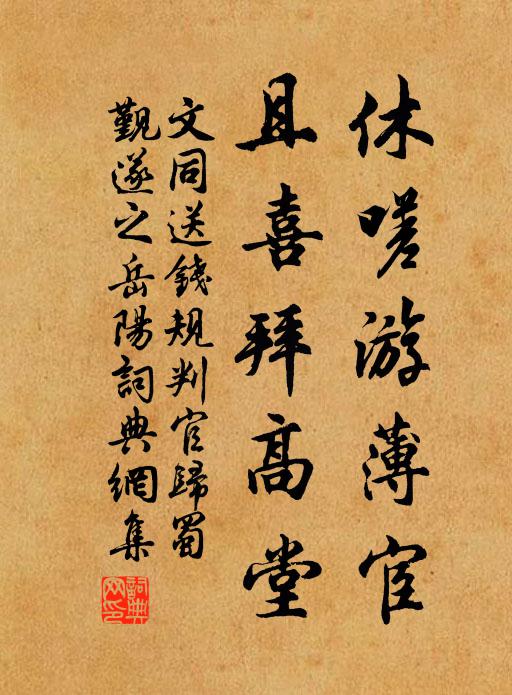 休嗟游薄宦
且喜拜高堂
文同送錢規判官歸蜀
覲遂之岳陽詞典網集
詞典网印